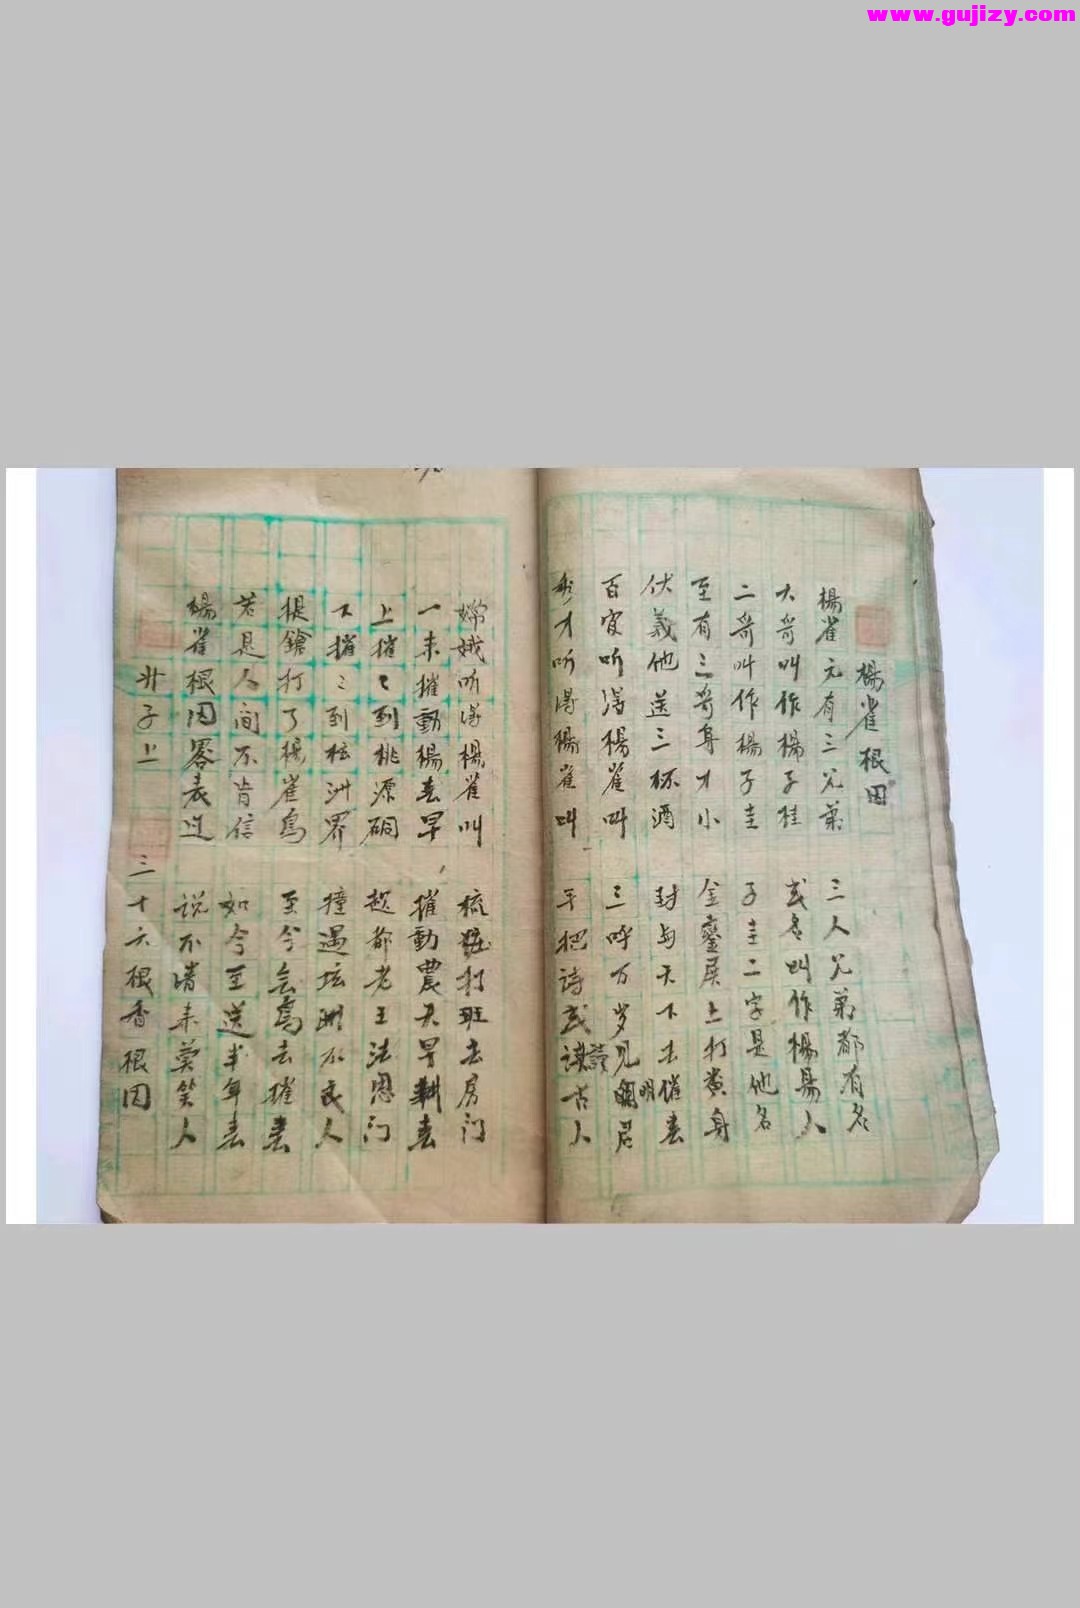 www.gujizy.com
楊雀根因
楊雀元有三兄弟 三人兄弟都有名
大哥叫作楊子桂 或名叫作楊易人
二哥叫作楊子圭 子圭二字是他名
至有三哥身才小 金鑾展上打黄身
伏羲他送三杯酒 封与天下去催春
百官听得楊雀叫 三呼万岁見明君
秀才听得楊雀叫 手把詩或讀古人
嫦娥听得楊雀叫 梳粧打班去房门
一来摧動楊春早 摧動農夫早耕春
上摧〻到桃源硐 赵都老王法恩门
下摧〻到柱洲界 撞遇坛洲不良人
提鎗打了楊雀鳥 至今会鳥去摧春
若是人间不肯信 如今至送半年春
楊雀根因畧表过 说不清来莫笑人
廾子上 三十六根香根因